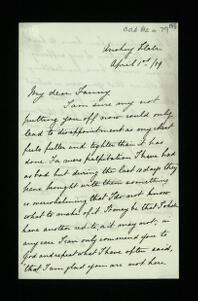 April 1st/79
My dear Fanny
I am sure my not
putting you off now could only
lead to disappointment as my chest
feels fuller and tighter than it has
done. In mere palpitation I have had
as bad but during the last 10 days they
have brought with them something
so overwhelming that I do not know
what to make of it. It may be that I shall
have another and it may not, in
any case I can only commend you to
God and repeat what I have often said,
that I am glad you are not here